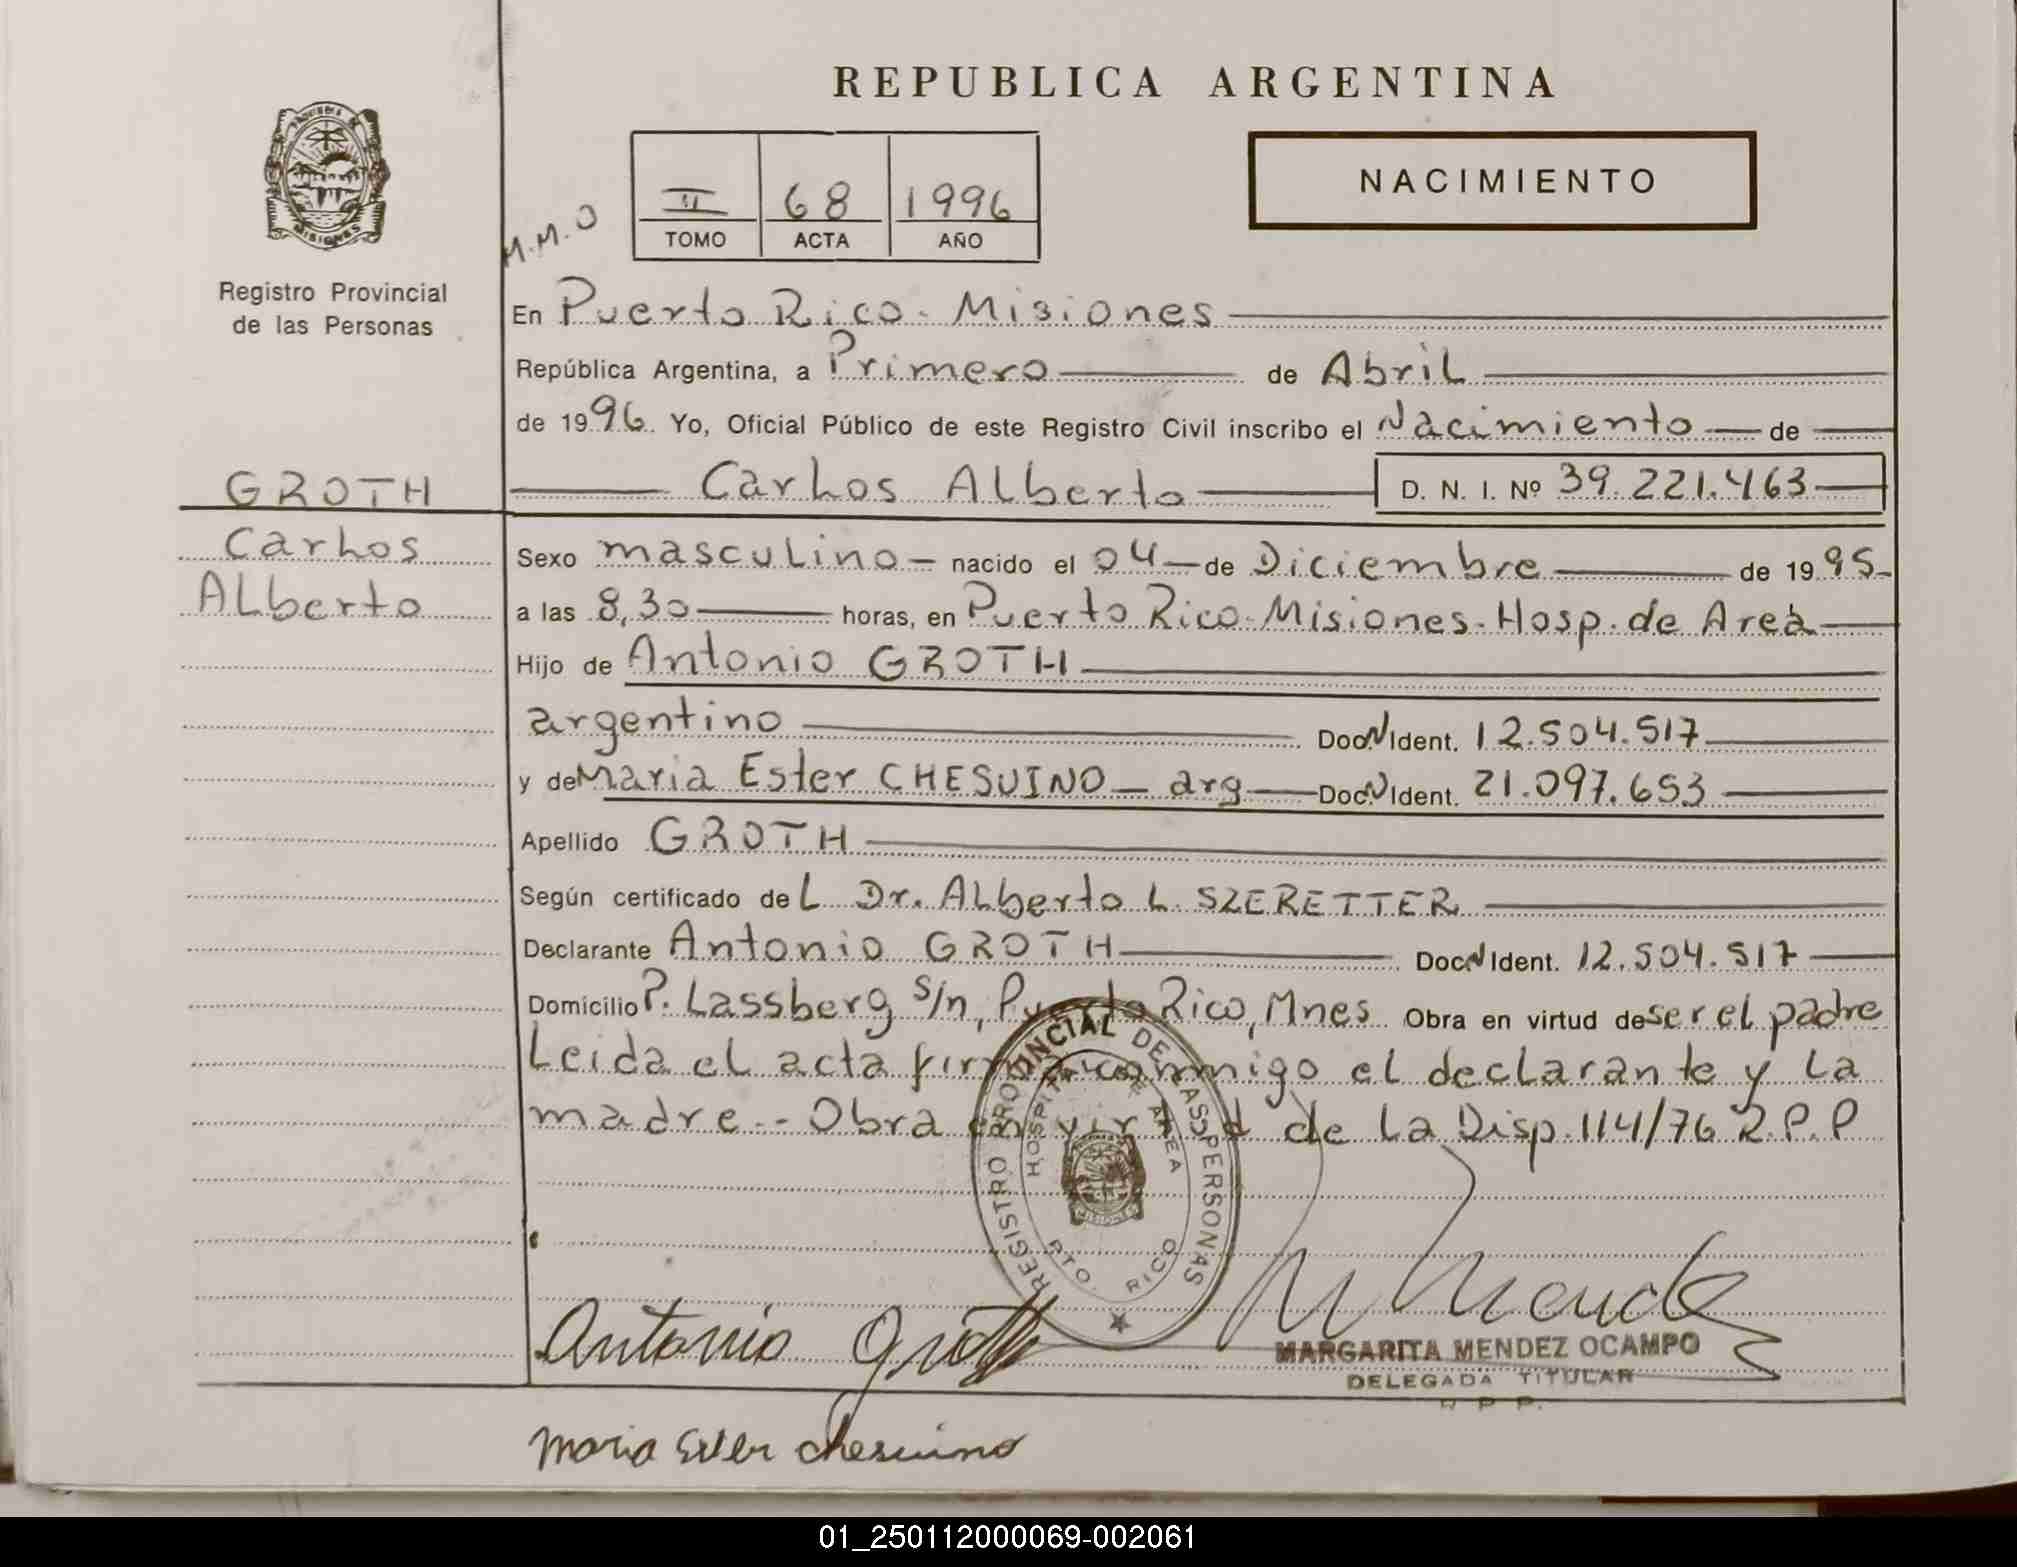 REPUBLICA ARGENTINA
NACIMIENTO
PROVINCIA DE
MISIONES
Registro Provincial
de las Personas
M.M.O
II 68 1996
TOMO ACTA AÑO
En Puerto Rico - Misiones
República Argentina, a Primero de Abril
de 1996 Yo, Oficial Público de este Registro Civil inscribo el Nacimiento de
GROTH
Carlos Alberto D. N. I. Nº 39.221.463
Carlos
Alberto
Sexo masculino nacido el 04 de Diciembre de 1995
a las 8,30 horas, en Puerto Rico - Misiones - Hosp. de Area
Hijo de Antonio GROTH
argentino Doc. N Ident. 12.504.517
y de Maria Ester CHESUINO - arg Doc. N Ident. 21.097.653
Apellido GROTH
Según certificado del Dr. Alberto L. SZERETTER
Declarante Antonio GROTH Doc. N Ident. 12.504.517
Domicilio P. Lassberg s/n, Puerto Rico, Mnes Obra en virtud de ser el padre
Leida el acta firma conmigo el declarante y la
madre -- Obra en virtud de la Disp. 114/76 R.P.P
REGISTRO PROVINCIAL DE LAS PERSONAS
HOSPITAL DE AREA
MISIONES
PTO. RICO
Antonio Groth
M Mendez
MARGARITA MENDEZ OCAMPO
DELEGADA TITULAR
R P P.
Maria Ester Chesuino
01_250112000069-002061